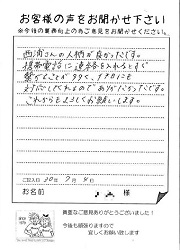 お客様の声をお聞かせ下さい
※今後の業務向上の為ご意見をお聞かせください。
西浦さんの人柄が良かったです。
携帯電話に連絡を入れるとすぐ
繋がることが多く、すぐに
対応してくれるのでありがたかったです。
これからもよろしくお願いします。
ご記入日 30年 7月 4日
お名前 様
貴重なご意見ありがとうございました!
今後も頑張りますので
宜しくお願い致します